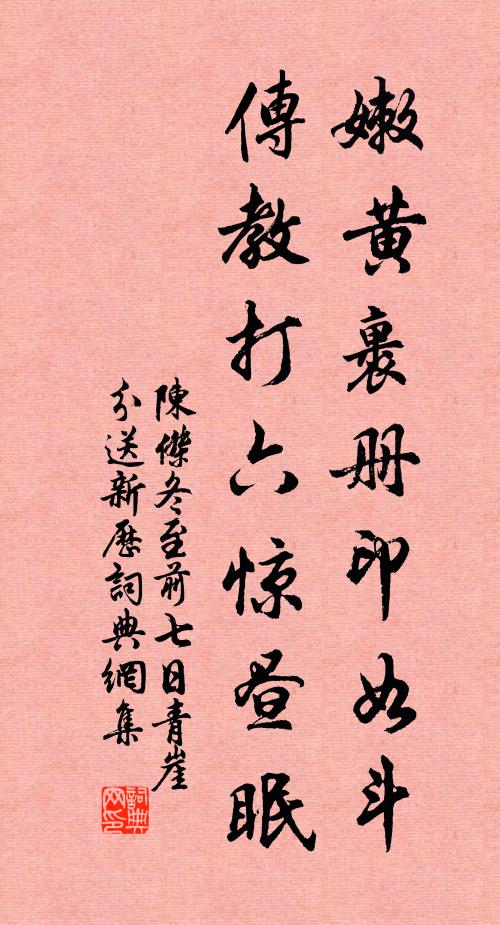 嫩黄裹册印如斗
傳教打六惊昼眠
陳傑冬至前七日青崖
分送新歷詞典網集
詞典网印